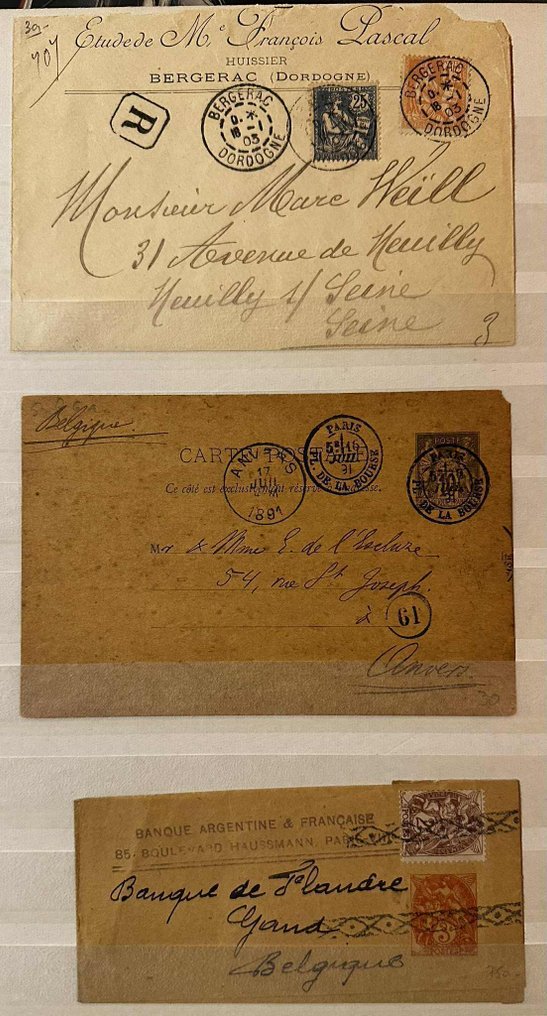 39-
707
Etude de Me François Pascal
HUISSIER
BERGERAC (DORDOGNE)
R
BERGERAC
18 - 1
03
DORDOGNE
25
BERGERAC
18 - 1
03
DORDOGNE
Monsieur Marc Weill
31 Avenue de Neuilly
Neuilly s/ Seine
Seine
3
Belgique
CARTE POSTALE
Ce côté est exclusivement réservé à l'adresse.
PARIS
16
JUIL
91
PL. DE LA BOURSE
ANVERS
17
JUIL
1891
POSTE
PARIS
PL. DE LA BOURSE
Mr & Mme E. de l'Escluze
54, rue St Joseph.
à
61
Anvers.
30
BANQUE ARGENTINE & FRANÇAISE
85, BOULEVARD HAUSSMANN, PARIS
2
Banque de Flandre
Gand
3
Belgique
750-